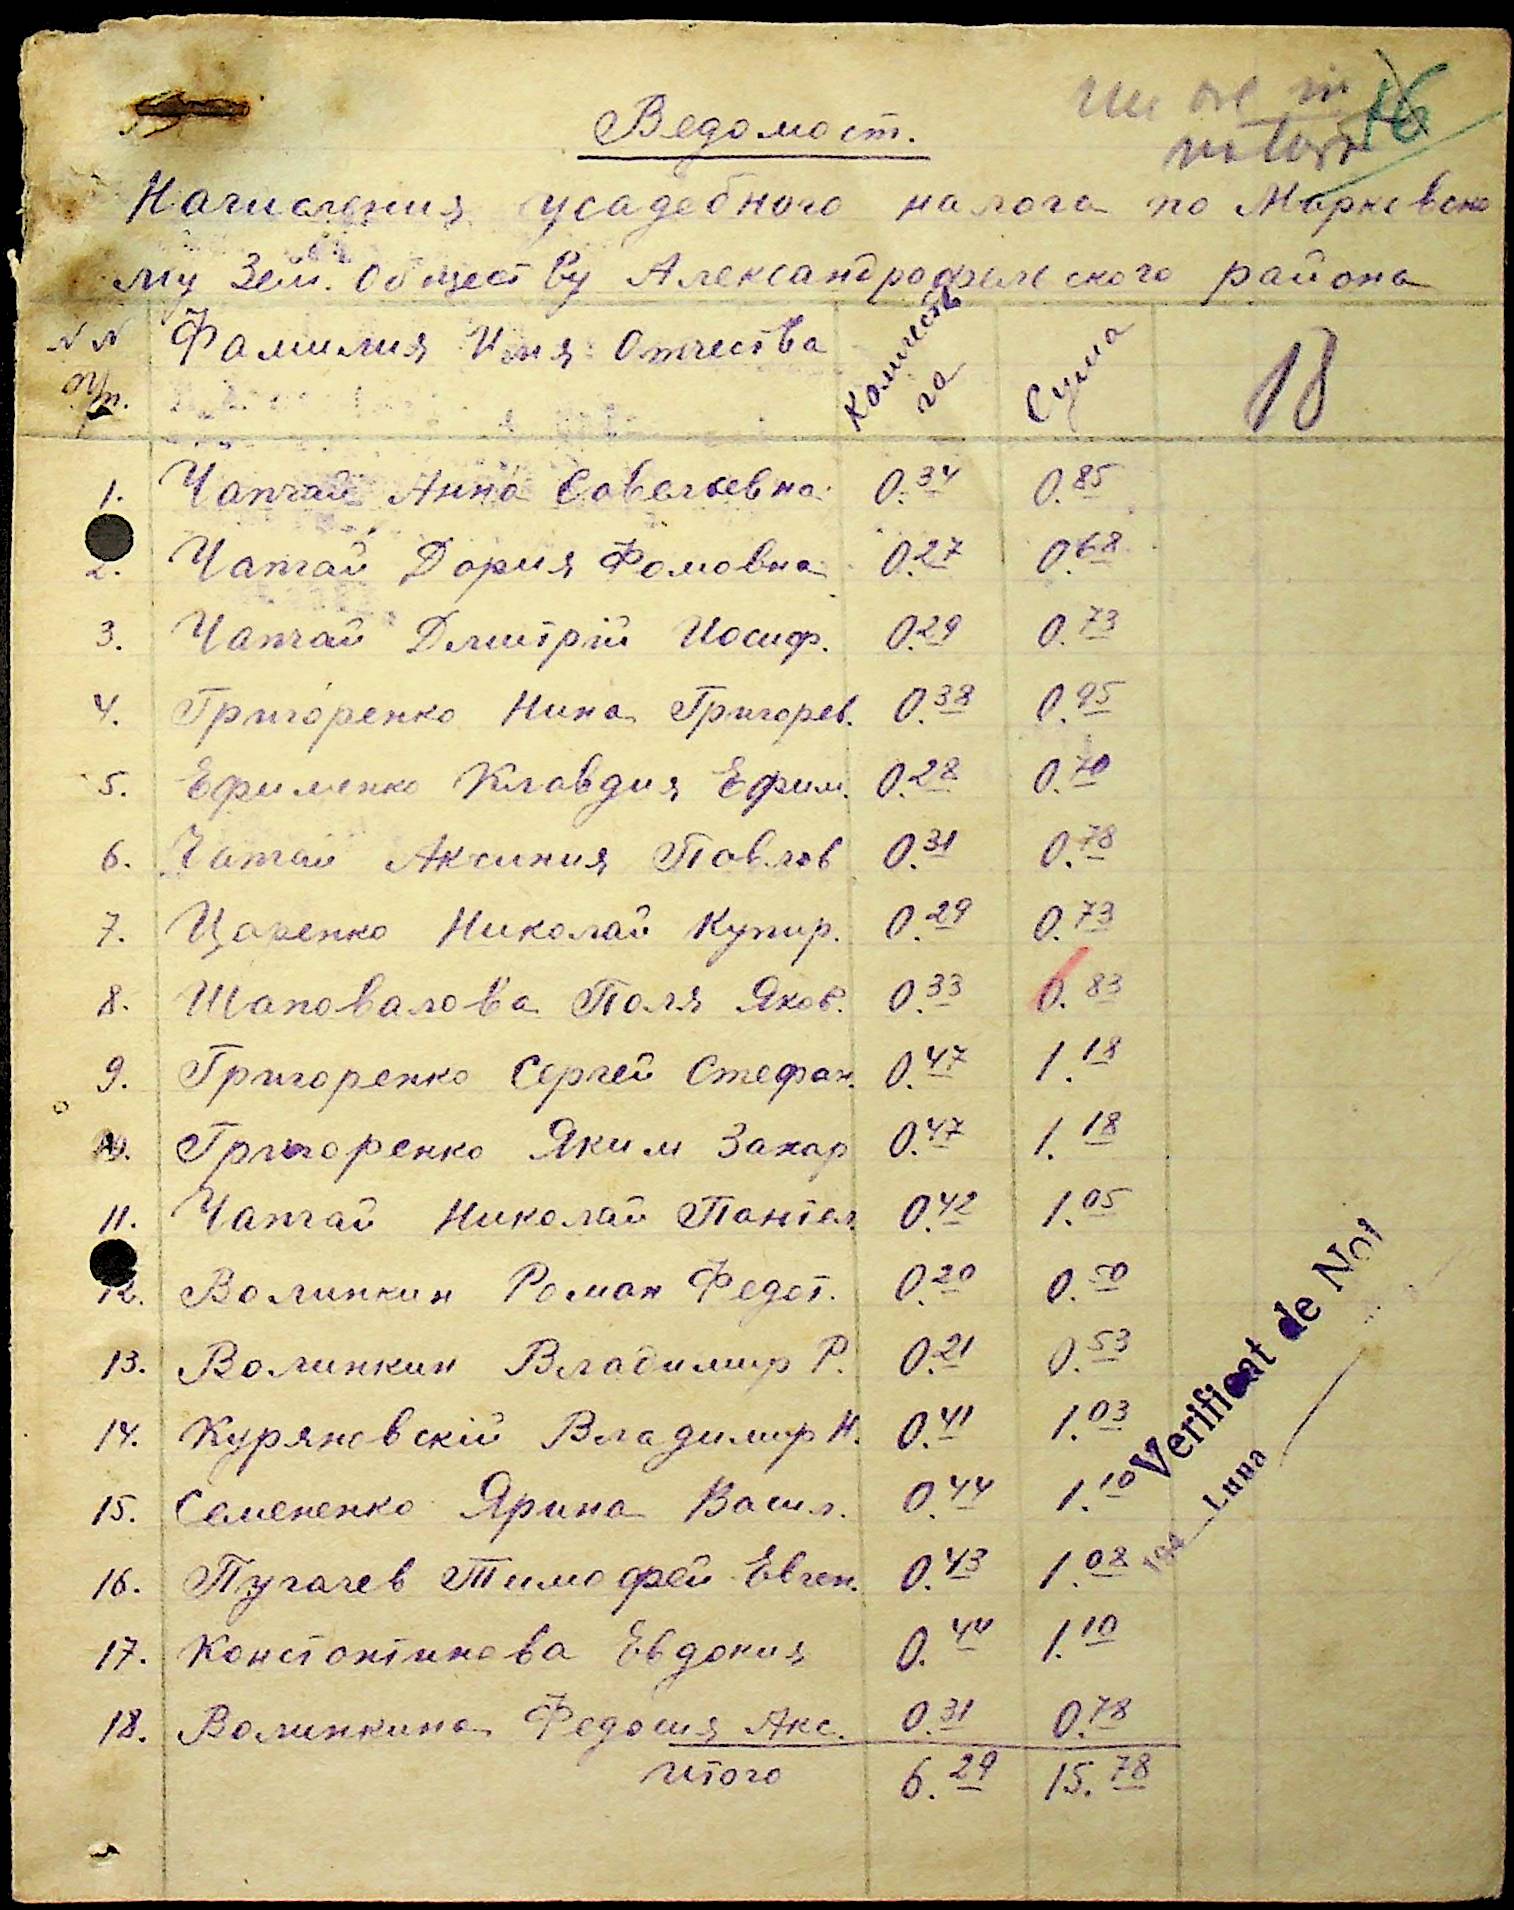 Ведомост.
16
Начисления усадебного налога по Марковско
му Зем. Обществу Александрофельского района
№№ пп. Фамилия Имя Отчества Количеств га Сума 18
1. Чапчай Анна Савельевна 0.34 0.85
2. Чапчай Дария Фомовна 0.27 0.68
3. Чапчай Дмитрій Иосиф. 0.29 0.73
4. Григоренко Нина Григорев. 0.38 0.95
5. Ефименко Клавдия Ефим. 0.28 0.70
6. Чапчай Аксиния Павлов 0.31 0.78
7. Царенко Николай Купир. 0.29 0.73
8. Шаповалова Поля Яков. 0.33 0.83
9. Григоренко Сергей Стефан. 0.47 1.18
10. Григоренко Яким Захар 0.47 1.18
11. Чапчай Николай Пантел 0.42 1.05
12. Волинкин Роман Федот. 0.20 0.50
13. Волинкин Владимир Р. 0.21 0.53
14. Куряновскій Владимир Н. 0.41 1.03
15. Семененко Ярина Васил. 0.44 1.10
16. Пугачев Тимофей Евген. 0.43 1.08
17. Константинова Евдокия 0.44 1.10
18. Волинкина Федосия Акс. 0.31 0.78
Итого 6.29 15.78
Verificat de Noi
194 Luna